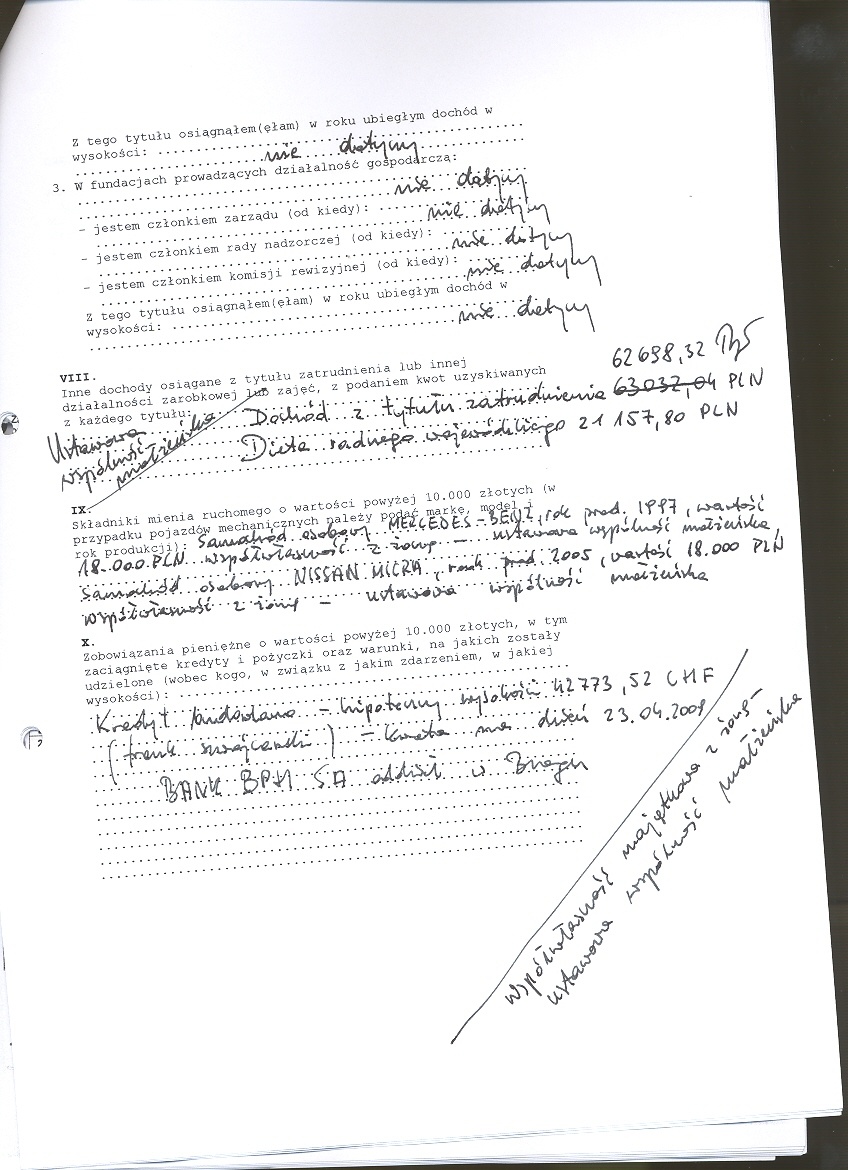 Z tego tytułu osiągnąłem(ęłam) w roku ubiegłym dochód w
wysokości: ........................................
nie dotyczy
3. W fundacjach prowadzących działalność gospodarczą:
nie dotyczy
- jestem członkiem zarządu (od kiedy): nie dotyczy
- jestem członkiem rady nadzorczej (od kiedy): nie dotyczy
- jestem członkiem komisji rewizyjnej (od kiedy): nie dotyczy
Z tego tytułu osiągnąłem(ęłam) w roku ubiegłym dochód w
wysokości: nie dotyczy
VIII.
Inne dochody osiągane z tytułu zatrudnienia lub innej
działalności zarobkowej lub zajęć, z podaniem kwot uzyskiwanych
z każdego tytułu:
62698,32
Dochód z tytułu zatrudnienia 63032,04 PLN
Dieta radnego wojewódzkiego 21 157,80 PLN
Ustawowa
wspólność
małżeńska
IX.
Składniki mienia ruchomego o wartości powyżej 10.000 złotych (w
przypadku pojazdów mechanicznych należy podać markę, model i
rok produkcji): Samochód osobowy MERCEDES-BENZ, rok prod. 1997, wartość
18.000 PLN współwłasność z żoną - ustawowa wspólność małżeńska,
Samochód osobowy NISSAN MICRA, rok prod. 2005, wartość 18.000 PLN
współwłasność z żoną - ustawowa wspólność małżeńska
X.
Zobowiązania pieniężne o wartości powyżej 10.000 złotych, w tym
zaciągnięte kredyty i pożyczki oraz warunki, na jakich zostały
udzielone (wobec kogo, w związku z jakim zdarzeniem, w jakiej
wysokości):
Kredyt budowlano - hipoteczny wysokość 42773,52 CHF
(frank szwajcarski) - kwota na dzień 23.04.2009
BANK BPH SA oddział w Brzegu
współwłasność majątkowa z żoną -
ustawowa wspólność małżeńska